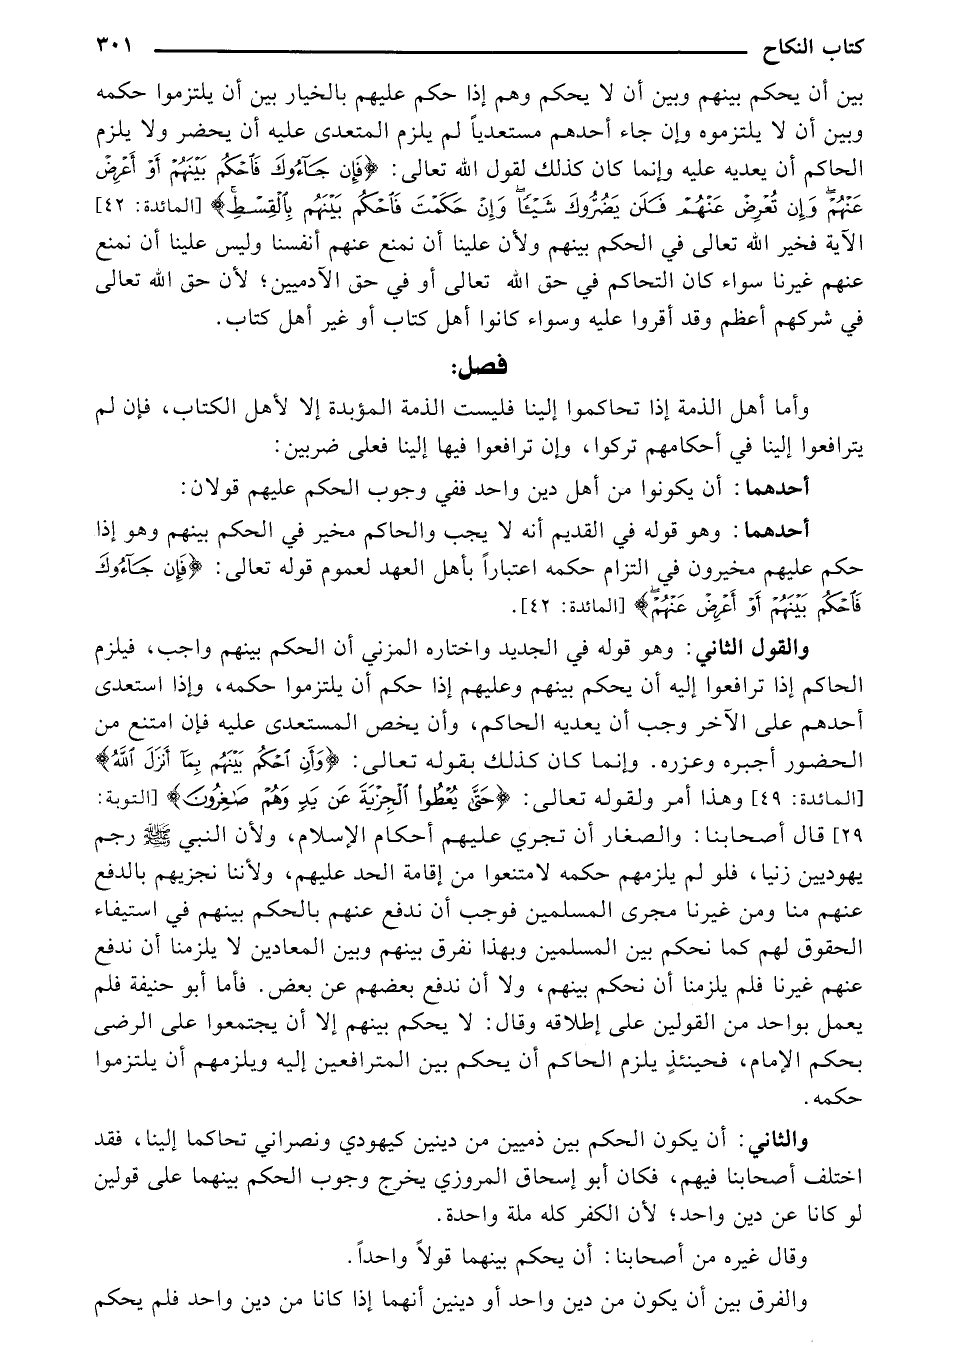 كتاب النكاح ٣٠١
بين أن يحكم بينهم وبين أن لا يحكم وهم إذا حكم عليهم بالخيار بين أن يلتزموا حكمه
وبين أن لا يلتزموه وإن جاء أحدهم مستعدياً لم يلزم المتعدى عليه أن يحضر ولا يلزم
الحاكم أن يعديه عليه وإنما كان كذلك لقول الله تعالى: ﴿فَإِن جَآءُوكَ فَٱحْكُم بَيْنَهُمْ أَوْ أَعْرِضْ
عَنْهُمْ ۖ وَإِن تُعْرِضْ عَنْهُمْ فَلَن يَضُرُّوكَ شَيْـًٔا ۖ وَإِنْ حَكَمْتَ فَٱحْكُم بَيْنَهُم بِٱلْقِسْطِ ۚ﴾ [المائدة: ٤٢]
الآية فخير الله تعالى في الحكم بينهم ولأن علينا أن نمنع عنهم أنفسنا وليس علينا أن نمنع
عنهم غيرنا سواء كان التحاكم في حق الله تعالى أو في حق الآدميين؛ لأن حق الله تعالى
في شركهم أعظم وقد أقروا عليه وسواء كانوا أهل كتاب أو غير أهل كتاب.
فصل:
وأما أهل الذمة إذا تحاكموا إلينا فليست الذمة المؤبدة إلا لأهل الكتاب، فإن لم
يترافعوا إلينا في أحكامهم تركوا، وإن ترافعوا فيها إلينا فعلى ضربين:
أحدهما: أن يكونوا من أهل دين واحد ففي وجوب الحكم عليهم قولان:
أحدهما: وهو قوله في القديم أنه لا يجب والحاكم مخير في الحكم بينهم وهو إذا
حكم عليهم مخيرون في التزام حكمه اعتباراً بأهل العهد لعموم قوله تعالى: ﴿فَإِن جَآءُوكَ
فَٱحْكُم بَيْنَهُمْ أَوْ أَعْرِضْ عَنْهُمْ ۖ﴾ [المائدة: ٤٢].
والقول الثاني: وهو قوله في الجديد واختاره المزني أن الحكم بينهم واجب، فيلزم
الحاكم إذا ترافعوا إليه أن يحكم بينهم وعليهم إذا حكم أن يلتزموا حكمه، وإذا استعدى
أحدهم على الآخر وجب أن يعديه الحاكم، وأن يخص المستعدى عليه فإن امتنع من
الحضور أجبره وعزره. وإنما كان كذلك بقوله تعالى: ﴿وَأَنِ ٱحْكُم بَيْنَهُم بِمَآ أَنزَلَ ٱللَّهُ﴾
[المائدة: ٤٩] وهذا أمر ولقوله تعالى: ﴿حَتَّىٰ يُعْطُوا۟ ٱلْجِزْيَةَ عَن يَدٍ وَهُمْ صَـٰغِرُونَ﴾ [التوبة:
٢٩] قال أصحابنا: والصغار أن تجري عليهم أحكام الإسلام، ولأن النبي ﷺ رجم
يهوديين زنيا، فلو لم يلزمهم حكمه لامتنعوا من إقامة الحد عليهم، ولأننا نجزيهم بالدفع
عنهم منا ومن غيرنا مجرى المسلمين فوجب أن ندفع عنهم بالحكم بينهم في استيفاء
الحقوق لهم كما نحكم بين المسلمين وبهذا نفرق بينهم وبين المعادين لا يلزمنا أن ندفع
عنهم غيرنا فلم يلزمنا أن نحكم بينهم، ولا أن ندفع بعضهم عن بعض. فأما أبو حنيفة فلم
يعمل بواحد من القولين على إطلاقه وقال: لا يحكم بينهم إلا أن يجتمعوا على الرضى
بحكم الإمام، فحينئذٍ يلزم الحاكم أن يحكم بين المترافعين إليه ويلزمهم أن يلتزموا
حكمه.
والثاني: أن يكون الحكم بين ذميين من دينين كيهودي ونصراني تحاكما إلينا، فقد
اختلف أصحابنا فيهم، فكان أبو إسحاق المروزي يخرج وجوب الحكم بينهما على قولين
لو كانا عن دين واحد؛ لأن الكفر كله ملة واحدة.
وقال غيره من أصحابنا: أن يحكم بينهما قولاً واحداً.
والفرق بين أن يكون من دين واحد أو دينين أنهما إذا كانا من دين واحد فلم يحكم